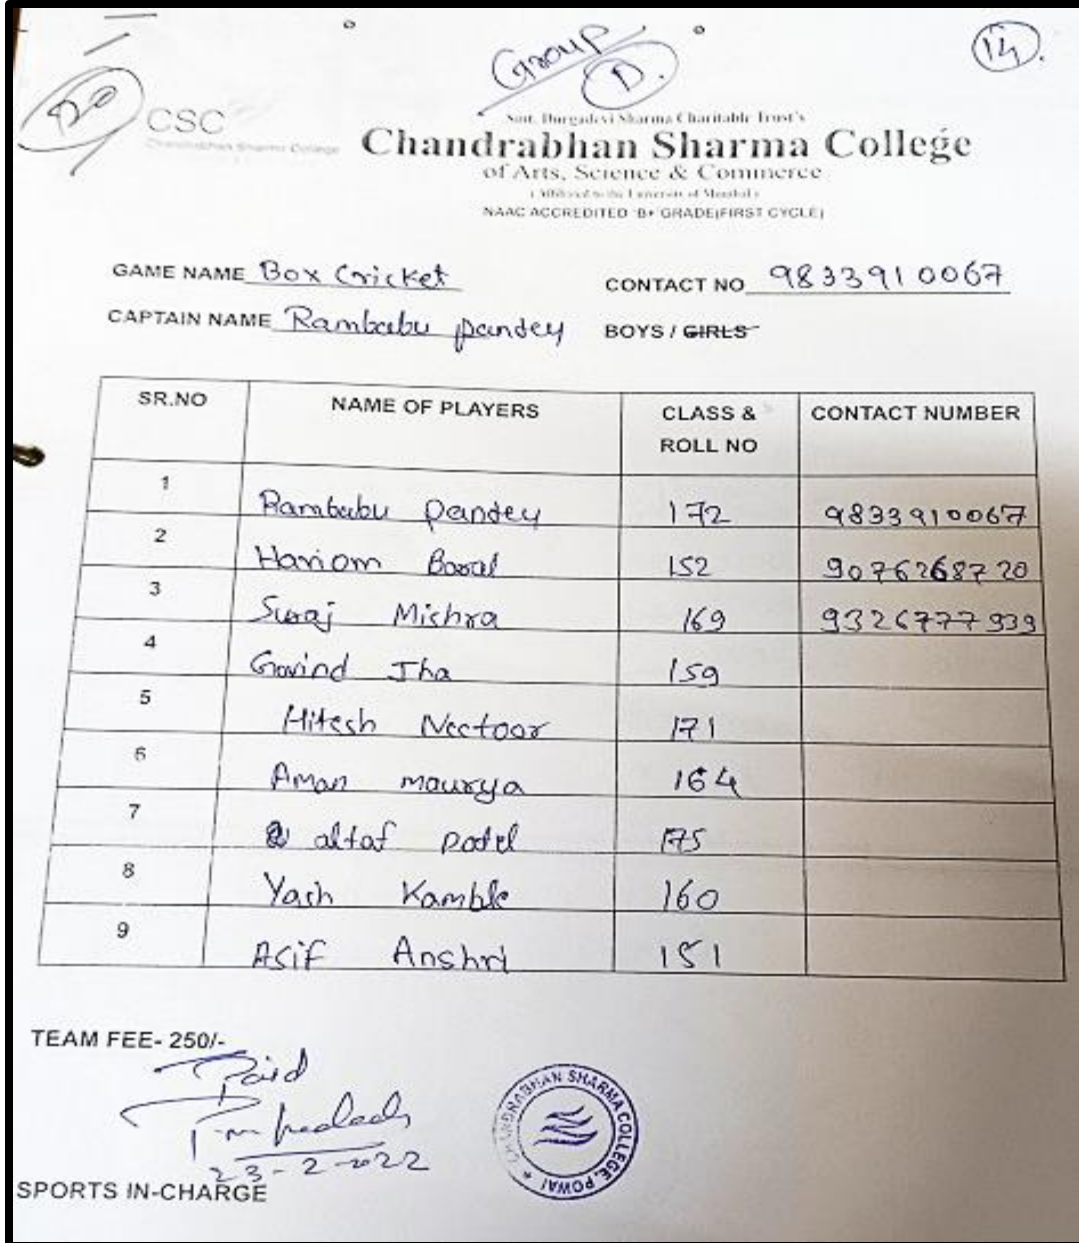 Group
D.
14.
20
CSC
Chandrabhan Sharma College
Smt. Durgadevi Sharma Charitable Trust's
Chandrabhan Sharma College
of Arts, Science & Commerce
(Affiliated to the University of Mumbai)
NAAC ACCREDITED 'B+' GRADE(FIRST CYCLE)
GAME NAME Box Cricket CONTACT NO 9833910067
CAPTAIN NAME Rambabu pandey BOYS / GIRLS
SR.NO NAME OF PLAYERS CLASS & ROLL NO CONTACT NUMBER
1 Rambabu pandey 172 9833910067
2 Hariom Baral 152 9076268720
3 Suraj Mishra 169 9326777939
4 Govind Jha 159
5 Hitesh Nectoor 171
6 Aman maurya 164
7 altaf patel 175
8 Yash Kamble 160
9 Asif Anshri 151
TEAM FEE- 250/-
Paid
23-2-2022
SPORTS IN-CHARGE
CHANDRABHAN SHARMA COLLEGE, POWAI